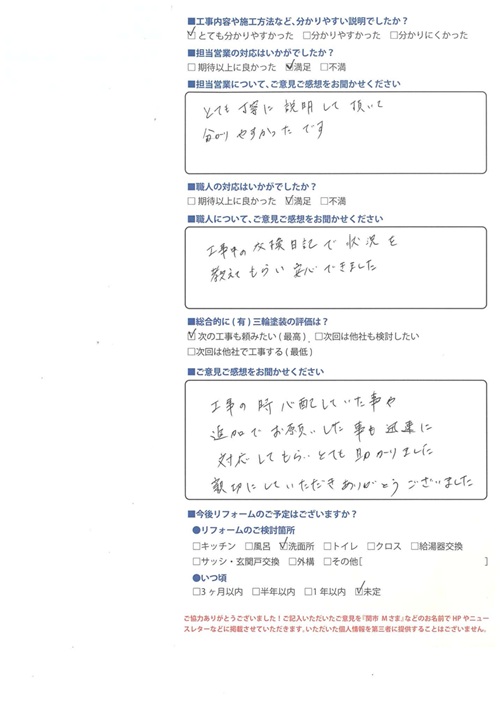 ■工事内容や施工方法など、分かりやすい説明でしたか？
☑とても分かりやすかった □分かりやすかった □分かりにくかった
■担当営業の対応はいかがでしたか？
□期待以上に良かった ☑満足 □不満
■担当営業について、ご意見ご感想をお聞かせください
とても丁寧に説明して頂いて
分かりやすかったです
■職人の対応はいかがでしたか？
□期待以上に良かった ☑満足 □不満
■職人について、ご意見ご感想をお聞かせください
工事中の交換日記で状況を
教えてもらい安心できました
■総合的に(有)三輪塗装の評価は？
☑次の工事も頼みたい(最高) □次回は他社も検討したい
□次回は他社で工事する(最低)
■ご意見ご感想をお聞かせください
工事の時心配していた事や
追加でお願いした事も迅速に
対応してもらいとても助かりました
親切にしていただきありがとうございました
■今後リフォームのご予定はございますか？
●リフォームのご検討箇所
□キッチン □風呂 ☑洗面所 □トイレ □クロス □給湯器交換
□サッシ・玄関戸交換 □外構 □その他[ ]
●いつ頃
□3ヶ月以内 □半年以内 □1年以内 ☑未定
ご協力ありがとうございました！ご記入いただいたご意見を『関市 Mさま』などのお名前でHPやニュー
スレターなどに掲載させていただきます。いただいた個人情報を第三者に提供することはございません。